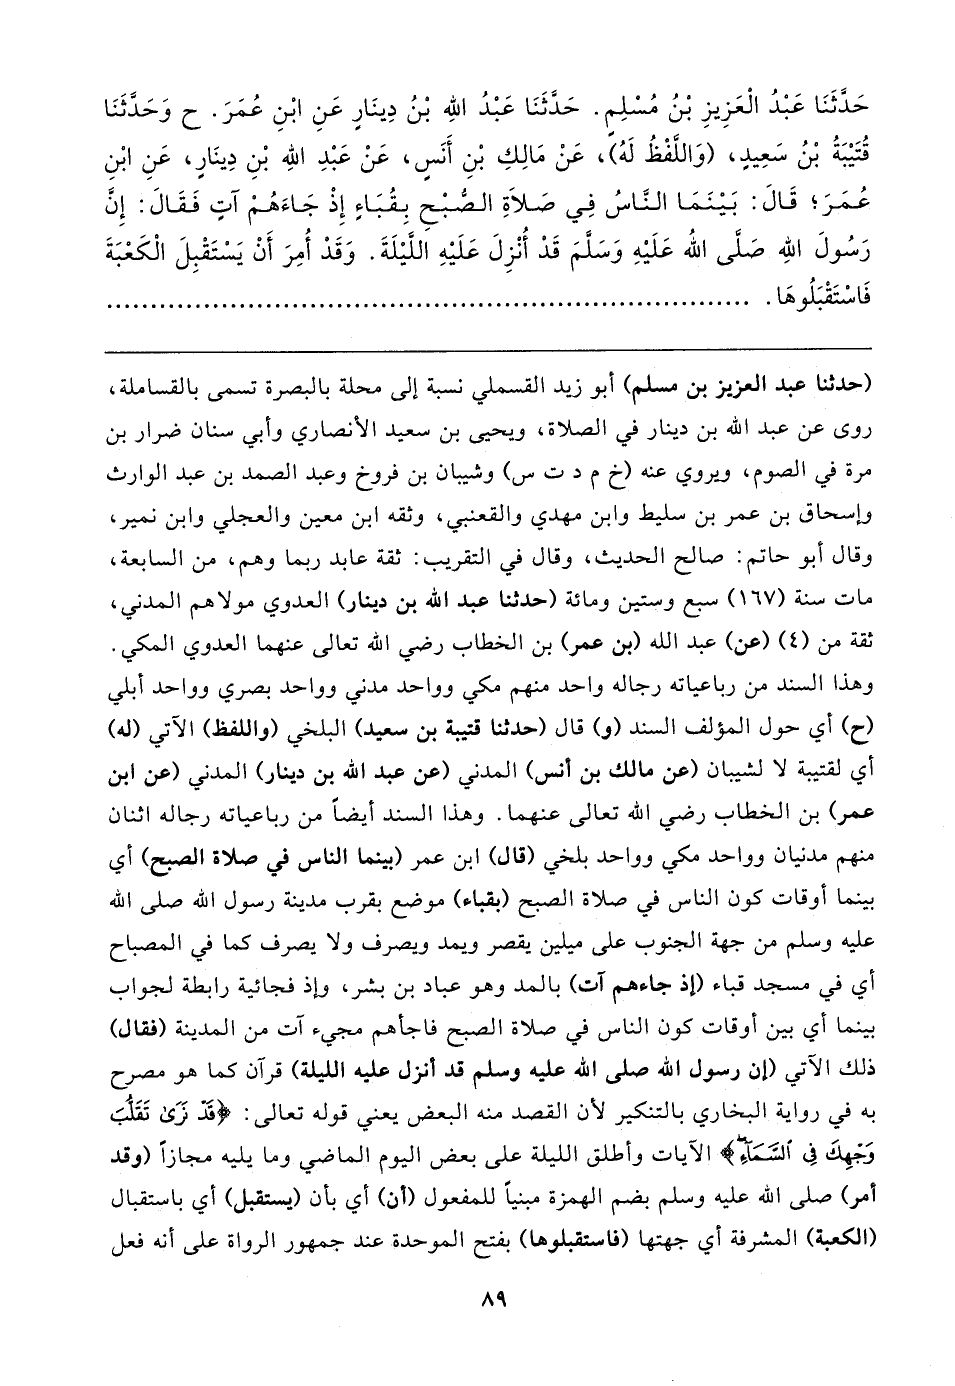 حَدَّثَنَا عَبْدُ الْعَزِيزِ بْنُ مُسْلِمٍ. حَدَّثَنَا عَبْدُ اللهِ بْنُ دِينَارٍ عَنِ ابْنِ عُمَرَ. ح وَحَدَّثَنَا
قُتَيْبَةُ بْنُ سَعِيدٍ، (وَاللَّفْظُ لَهُ)، عَنْ مَالِكِ بْنِ أَنَسٍ، عَنْ عَبْدِ اللهِ بْنِ دِينَارٍ، عَنِ ابْنِ
عُمَرَ؛ قَالَ: بَيْنَمَا النَّاسُ فِي صَلاَةِ الصُّبْحِ بِقُبَاءٍ إِذْ جَاءَهُمْ آتٍ فَقَالَ: إِنَّ
رَسُولَ اللهِ صَلَّى اللهُ عَلَيْهِ وَسَلَّمَ قَدْ أُنْزِلَ عَلَيْهِ اللَّيْلَةَ. وَقَدْ أُمِرَ أَنْ يَسْتَقْبِلَ الْكَعْبَةَ
فَاسْتَقْبَلُوهَا. ........................................................................
(حدثنا عبد العزيز بن مسلم) أبو زيد القسملي نسبة إلى محلة بالبصرة تسمى بالقساملة،
روى عن عبد الله بن دينار في الصلاة، ويحيى بن سعيد الأنصاري وأبي سنان ضرار بن
مرة في الصوم، ويروي عنه (خ م د ت س) وشيبان بن فروخ وعبد الصمد بن عبد الوارث
وإسحاق بن عمر بن سليط وابن مهدي والقعنبي، وثقه ابن معين والعجلي وابن نمير،
وقال أبو حاتم: صالح الحديث، وقال في التقريب: ثقة عابد ربما وهم، من السابعة،
مات سنة (١٦٧) سبع وستين ومائة (حدثنا عبد الله بن دينار) العدوي مولاهم المدني،
ثقة من (٤) (عن) عبد الله (بن عمر) بن الخطاب رضي الله تعالى عنهما العدوي المكي.
وهذا السند من رباعياته رجاله واحد منهم مكي وواحد مدني وواحد بصري وواحد أبلي
(ح) أي حول المؤلف السند (و) قال (حدثنا قتيبة بن سعيد) البلخي (واللفظ) الآتي (له)
أي لقتيبة لا لشيبان (عن مالك بن أنس) المدني (عن عبد الله بن دينار) المدني (عن ابن
عمر) بن الخطاب رضي الله تعالى عنهما. وهذا السند أيضاً من رباعياته رجاله اثنان
منهم مدنيان وواحد مكي وواحد بلخي (قال) ابن عمر (بينما الناس في صلاة الصبح) أي
بينما أوقات كون الناس في صلاة الصبح (بقباء) موضع بقرب مدينة رسول الله صلى الله
عليه وسلم من جهة الجنوب على ميلين يقصر ويمد ويصرف ولا يصرف كما في المصباح
أي في مسجد قباء (إذ جاءهم آت) بالمد وهو عباد بن بشر، وإذ فجائية رابطة لجواب
بينما أي بين أوقات كون الناس في صلاة الصبح فاجأهم مجيء آت من المدينة (فقال)
ذلك الآتي (إن رسول الله صلى الله عليه وسلم قد أنزل عليه الليلة) قرآن كما هو مصرح
به في رواية البخاري بالتنكير لأن القصد منه البعض يعني قوله تعالى: ﴿قَدْ نَرَىٰ تَقَلُّبَ
وَجْهِكَ فِي ٱلسَّمَآءِ﴾ الآيات وأطلق الليلة على بعض اليوم الماضي وما يليه مجازاً (وقد
أمر) صلى الله عليه وسلم بضم الهمزة مبنياً للمفعول (أن) أي بأن (يستقبل) أي باستقبال
(الكعبة) المشرفة أي جهتها (فاستقبلوها) بفتح الموحدة عند جمهور الرواة على أنه فعل
٨٩